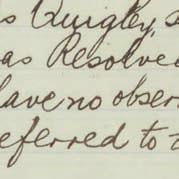 s Quigley, s
as Resolve
have no obser
eferred to t